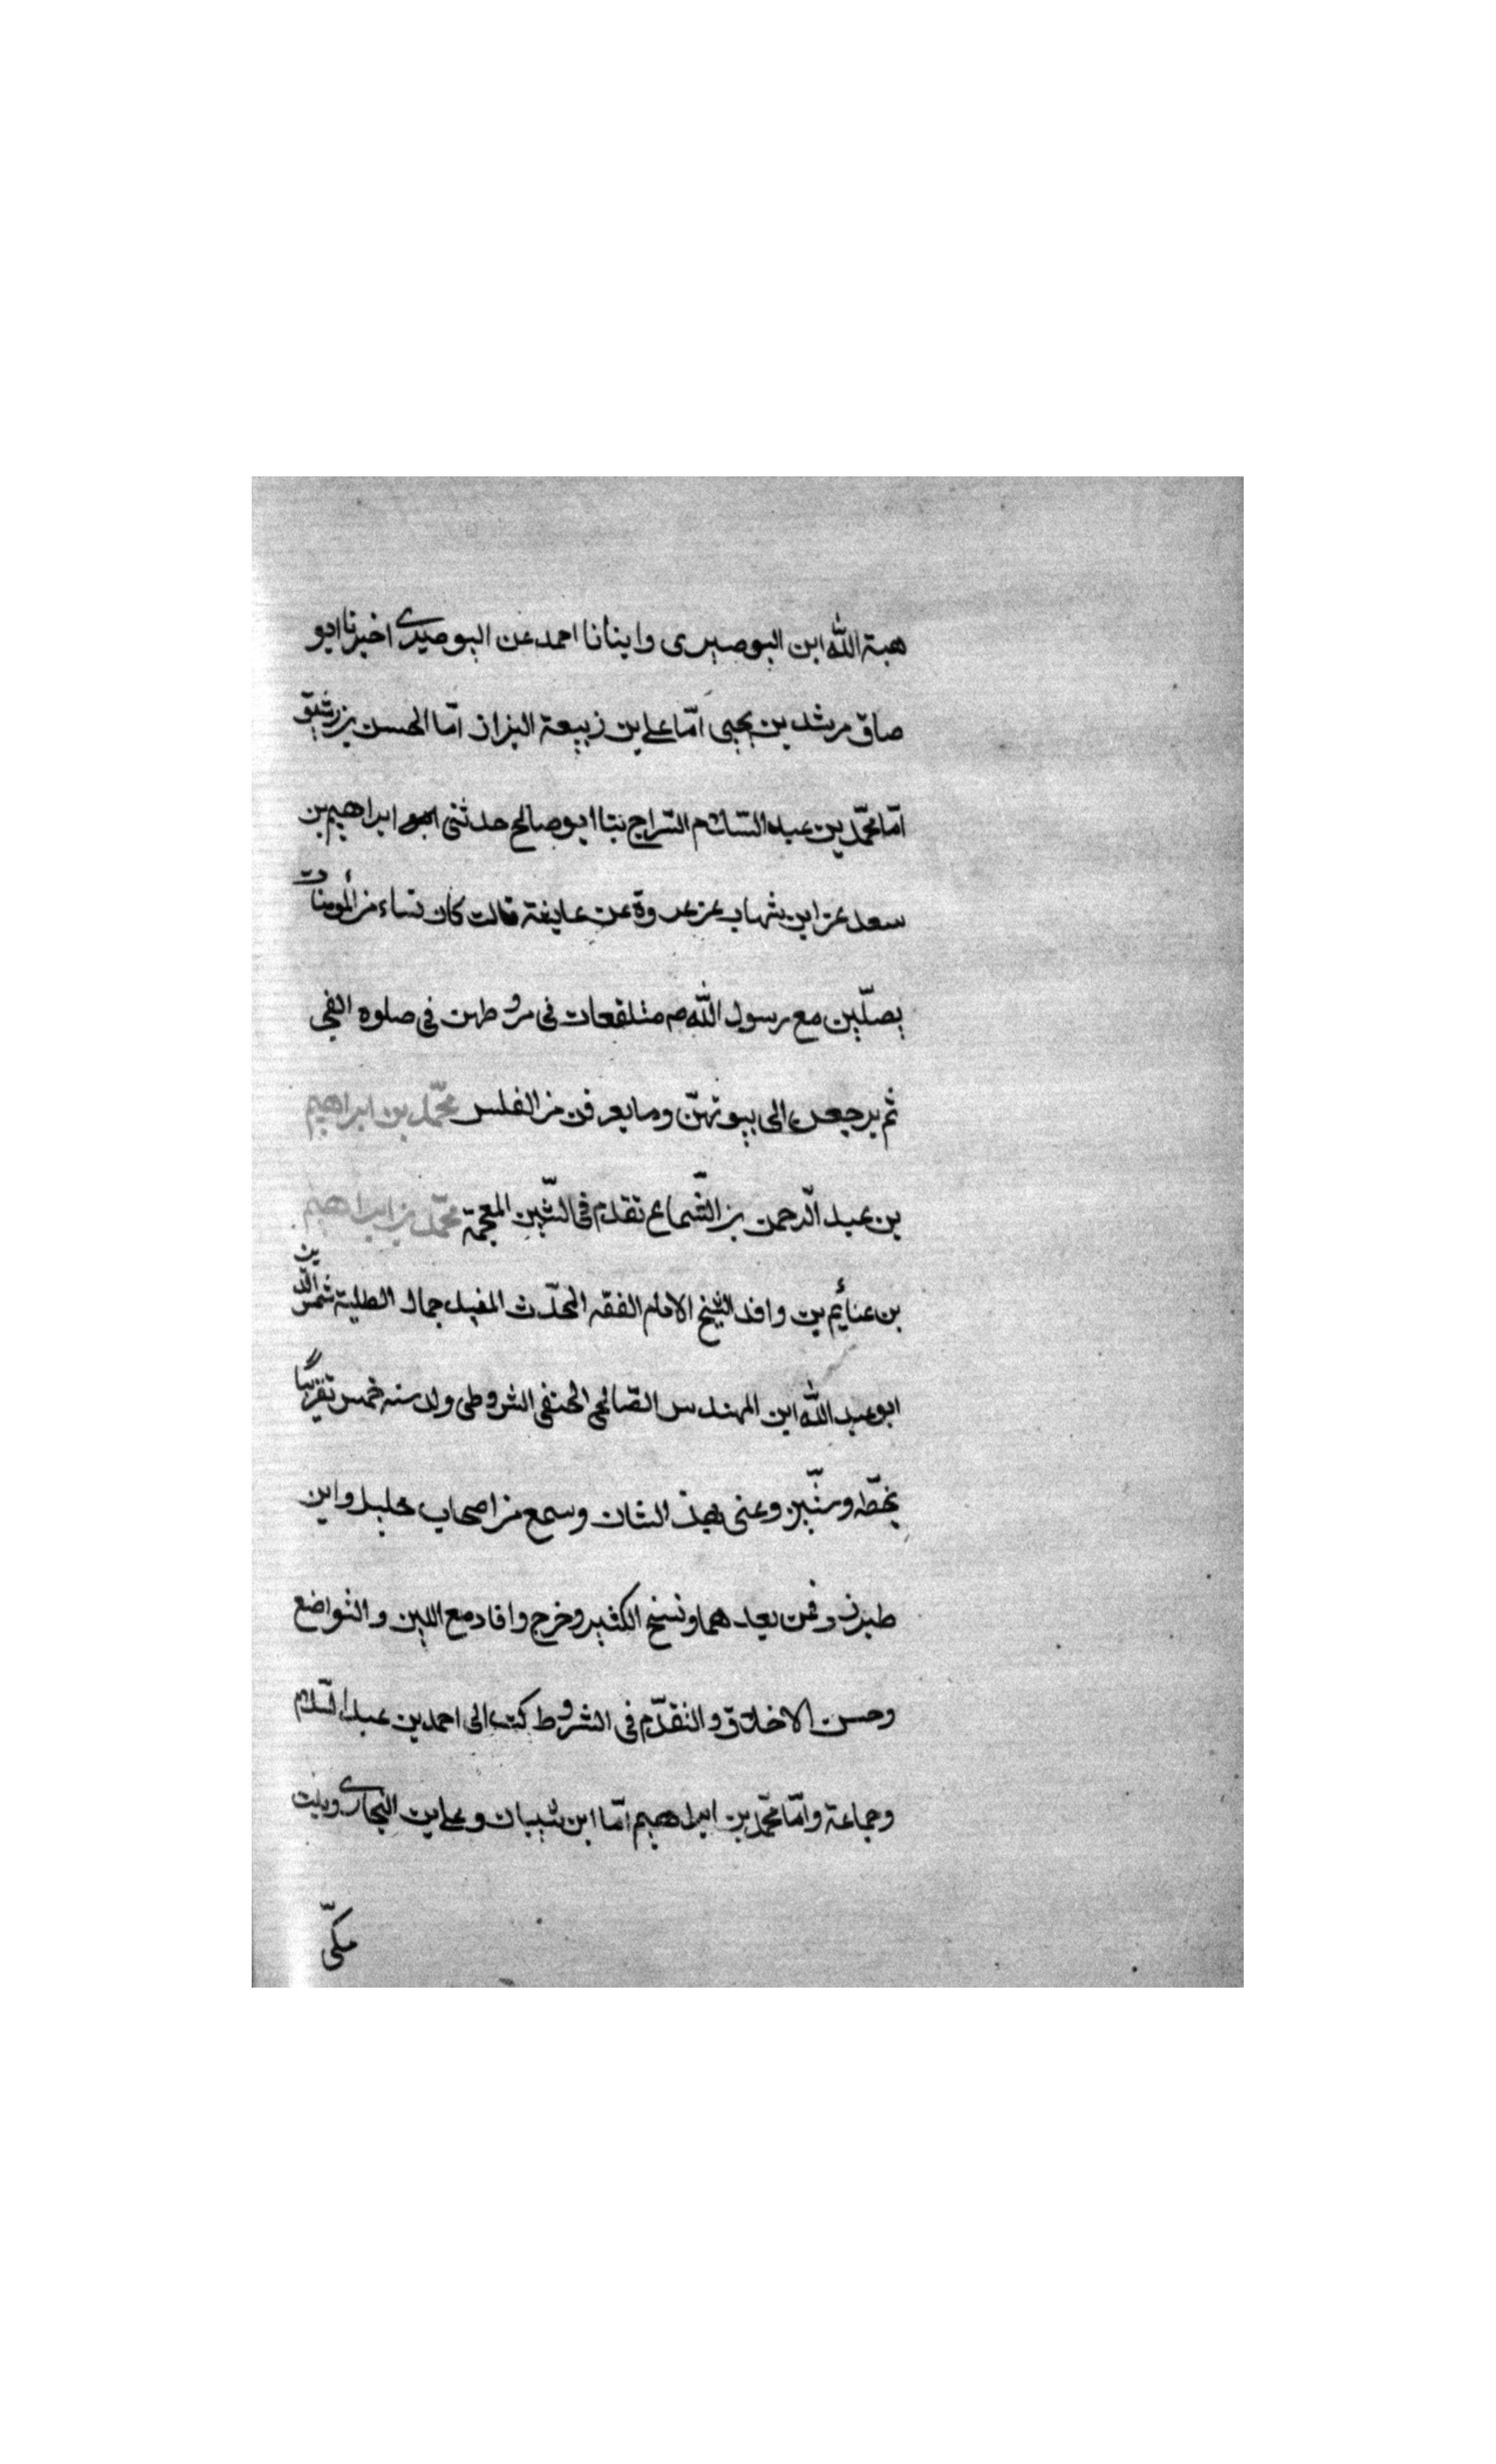 هبة الله ابن البوصيرى وابنانا احمد عن البوصيرى اخبرنا ابو
صاق مرشد بن يحيى امّا على بن زبيعة البزاز امّا الحسن بن رشيق
امّا محمّد بن عبد السّلام السّراج بنا ابو صالح حدثنى ابراهيم بن
سعد عن ابن شهاب عن عروة عن عايشة قالت كان نساء من المؤمنات
يصلّين مع رسول الله صم متلفعات فى مروطهن فى صلوة الفجر
ثم يرجعن الى بيوتهنّ وما يعرفن من الغلس محمّد بن ابراهيم
بن عبد الرّحمن بن الشّماع تقدم فى الشّين المعجمة محمّد بن ابراهيم
بن عنائم بن وافد الشيخ الامام الفقه المحدّث المفيد جمال الطلبة شمس الدّين
ابو عبد الله ابن المهندس الصّالحى الحنفى الشروطى ولد سنه خمس تقريبًا
بخطّه وستّين وعنى بهذ الشان وسمع من اصحاب حنبل وابن
طبرزد فمن بعدهما ونسخ الكثير وخرج وافاد مع اللين والتواضع
وحسن الاخلاق والتقدّم فى الشروط كتب الى احمد بن عبد السّلام
وجماعة وامّا محمّد بن ابراهيم امّا ابن شيبان وعلى بن النجارى وبنت
مكّى